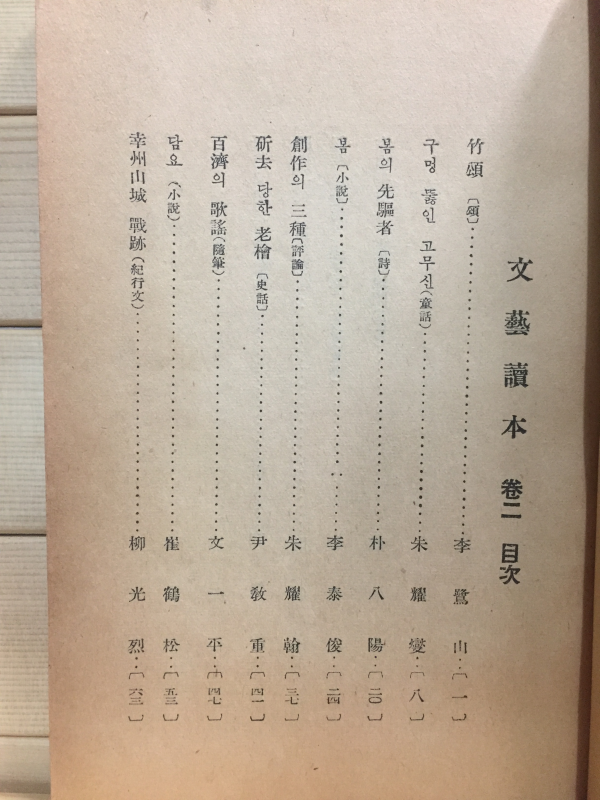 文藝讀本 卷二 目次
竹頌〔頌〕……李鷺山‥〔一〕
구멍 뚫인 고무신(童話)……朱耀燮‥〔八〕
봄의 先驅者〔詩〕……朴八陽‥〔二〇〕
봄〔小說〕……李泰俊‥〔二四〕
創作의 三種〔評論〕……朱耀翰‥〔三七〕
斫去 당한 老檜〔史話〕……尹敎重‥〔四一〕
百濟의 歌謠(隨筆)……文一平‥〔四七〕
담요(小說)……崔鶴松‥〔五三〕
幸州山城 戰跡(紀行文)……柳光烈‥〔六三〕